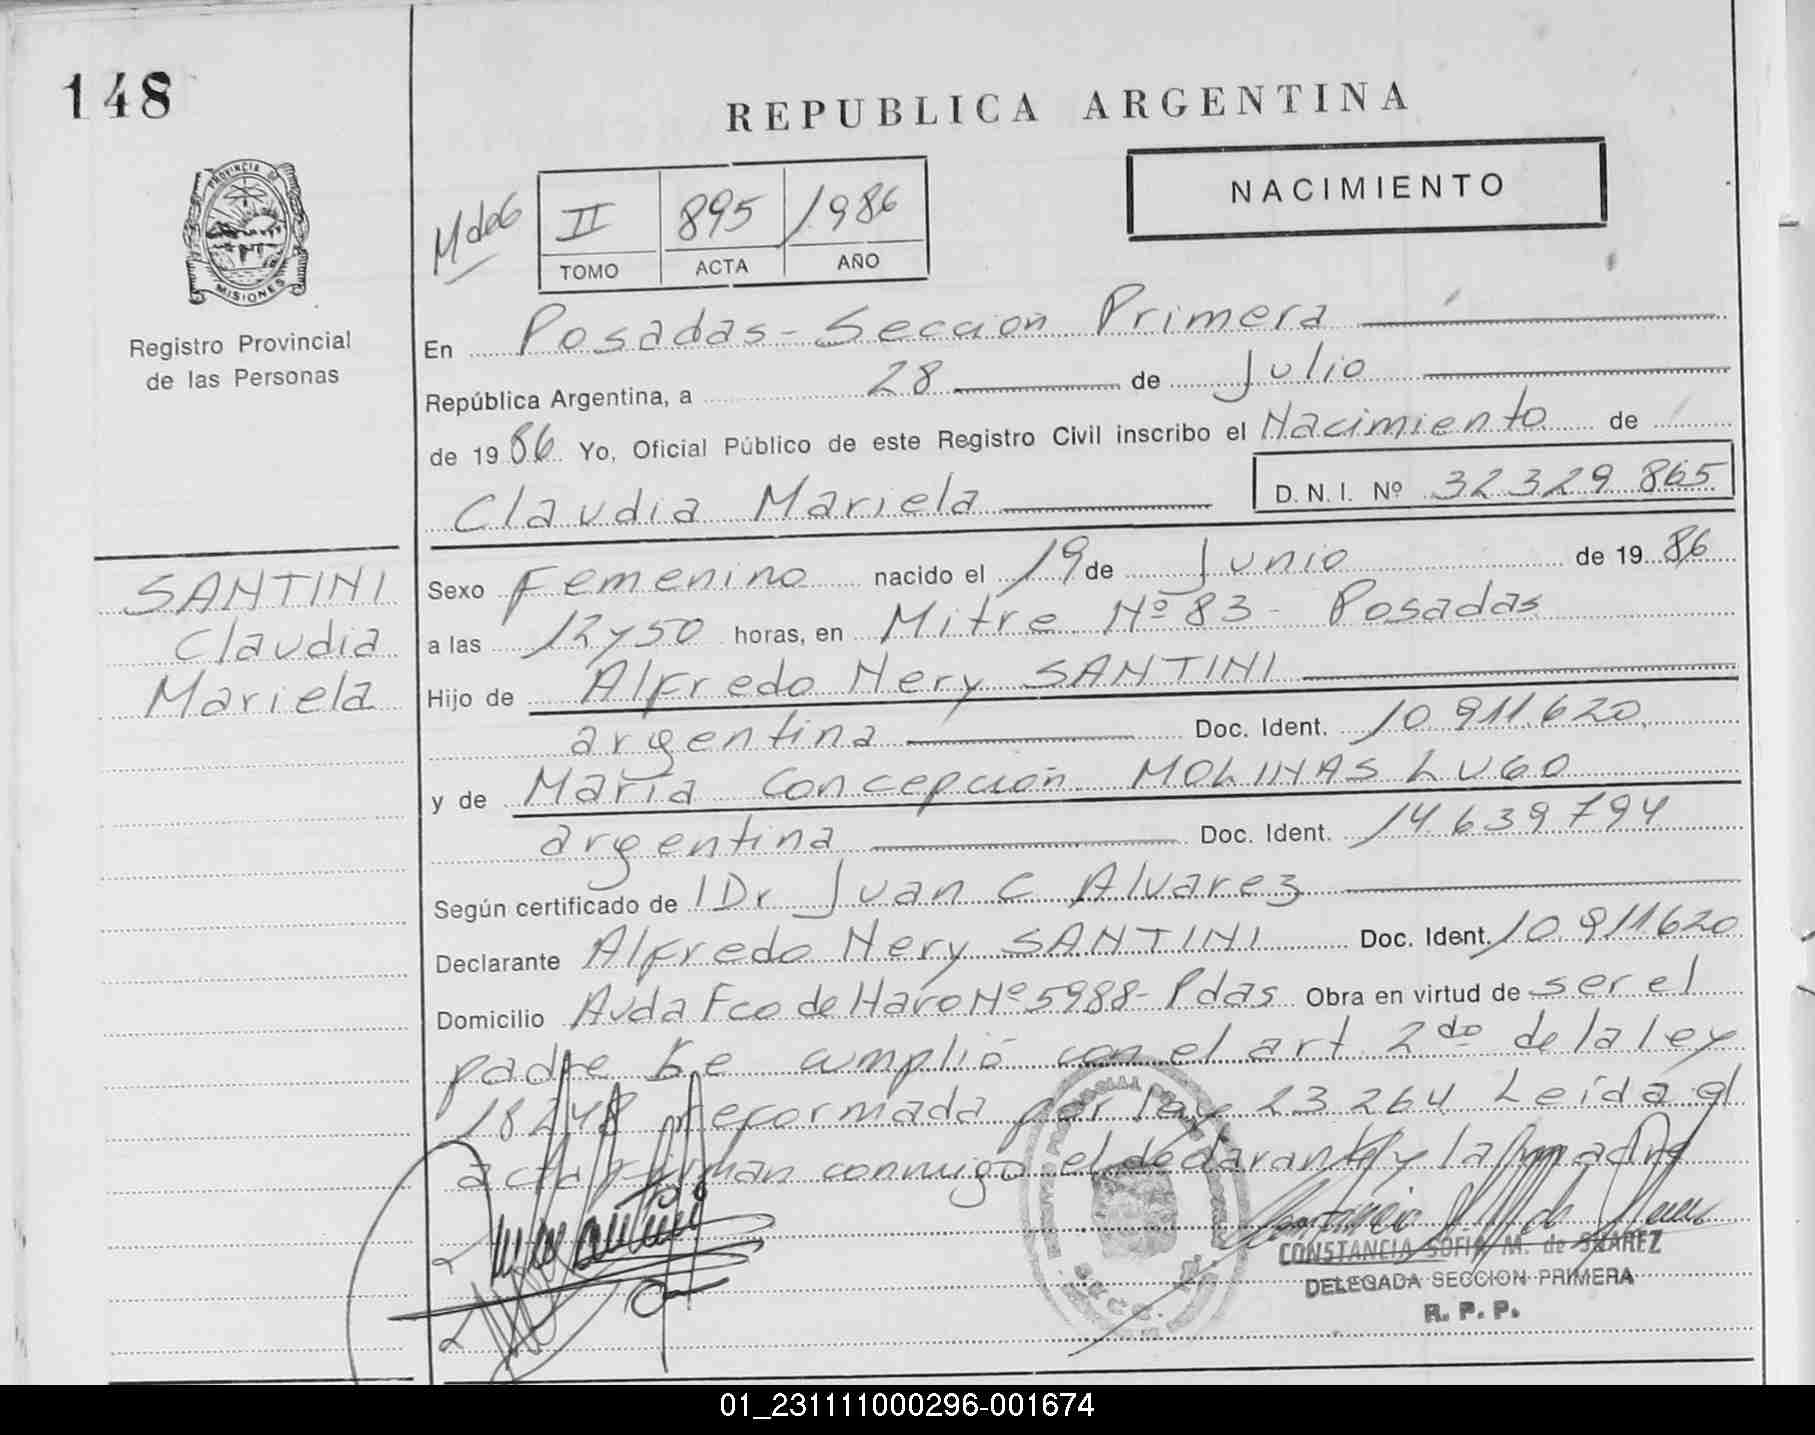 148
REPUBLICA ARGENTINA
NACIMIENTO
PROVINCIA DE
MISIONES
Registro Provincial
de las Personas
II 895 1986
TOMO ACTA AÑO
En Posadas - Seccion Primera
República Argentina, a 28 de Julio
de 1986 Yo, Oficial Público de este Registro Civil inscribo el Nacimiento de
Claudia Mariela D. N. I. Nº 32329865
SANTINI
Claudia
Mariela
Sexo Femenino nacido el 19 de Junio de 1986
a las 12 y 50 horas, en Mitre Nº 83 - Posadas
Hijo de Alfredo Nery SANTINI
argentina Doc. Ident. 10.911.620
y de María Concepción MOLINAS LUGO
argentina Doc. Ident. 14639794
Según certificado de Dr Juan C Alvarez
Declarante Alfredo Nery SANTINI Doc. Ident. 10.911620
Domicilio Avda Fco de Haro Nº 5988 - Pdas Obra en virtud de ser el
padre Se cumplió con el art. 2do de la ley
18248 reformada por ley 23264 Leída el
acta firman conmigo el declarante y la madre
CONSTANCIA SOFIA M. de SUAREZ
DELEGADA SECCION PRIMERA
R. P. P.
01_231111000296-001674